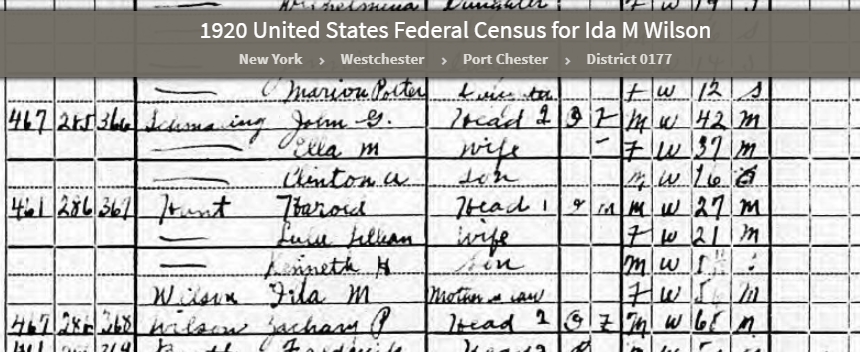 Wilhelmina Daughter F W 19 S
1920 United States Federal Census for Ida M Wilson
New York > Westchester > Port Chester > District 0177
Marion Potter F W 12 S
467 285 366 Schmaling John G. Head 2 O F M W 42 M
Ella M Wife F W 37 M
Clinton A Son M W 16 S
461 286 367 Hunt Harold Head 1 M W 27 M
Lulu Lillian Wife F W 21 M
Kenneth H Son M W
Wilson Ida M Mother in law F W M
467 286 368 Wilson Zachary P Head 2 O F M W M